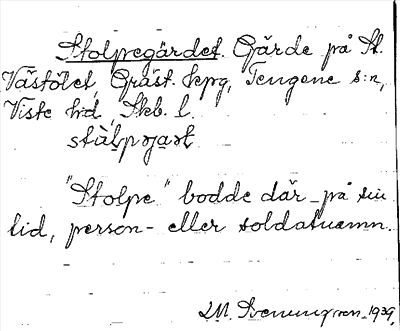 Stolpegärdet. Gärde på St.
Västölet, Gräst. kpg, Tengene s:n,
Viste hd, Skb. l.
"Stolpe" bodde där på sin
tid, person- eller soldatnamn.
1939,